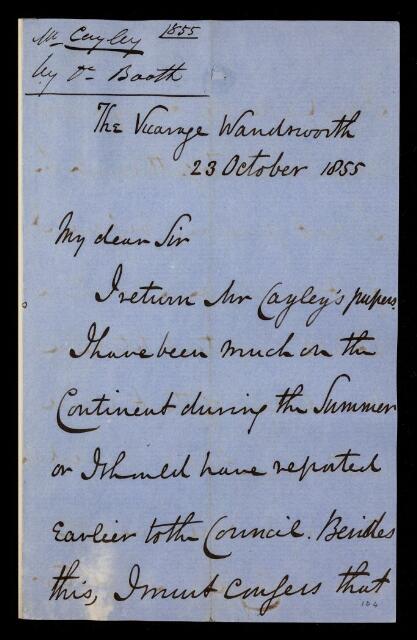 Mr Cayley 1855
by Dr Booth
The Vicarage Wandsworth
23 October 1855
My dear Sir
I return Mr Cayley's papers.
I have been much on the
Continent during the Summer
or I should have reported
Earlier to the Council. Besides
this, I must confess that
104